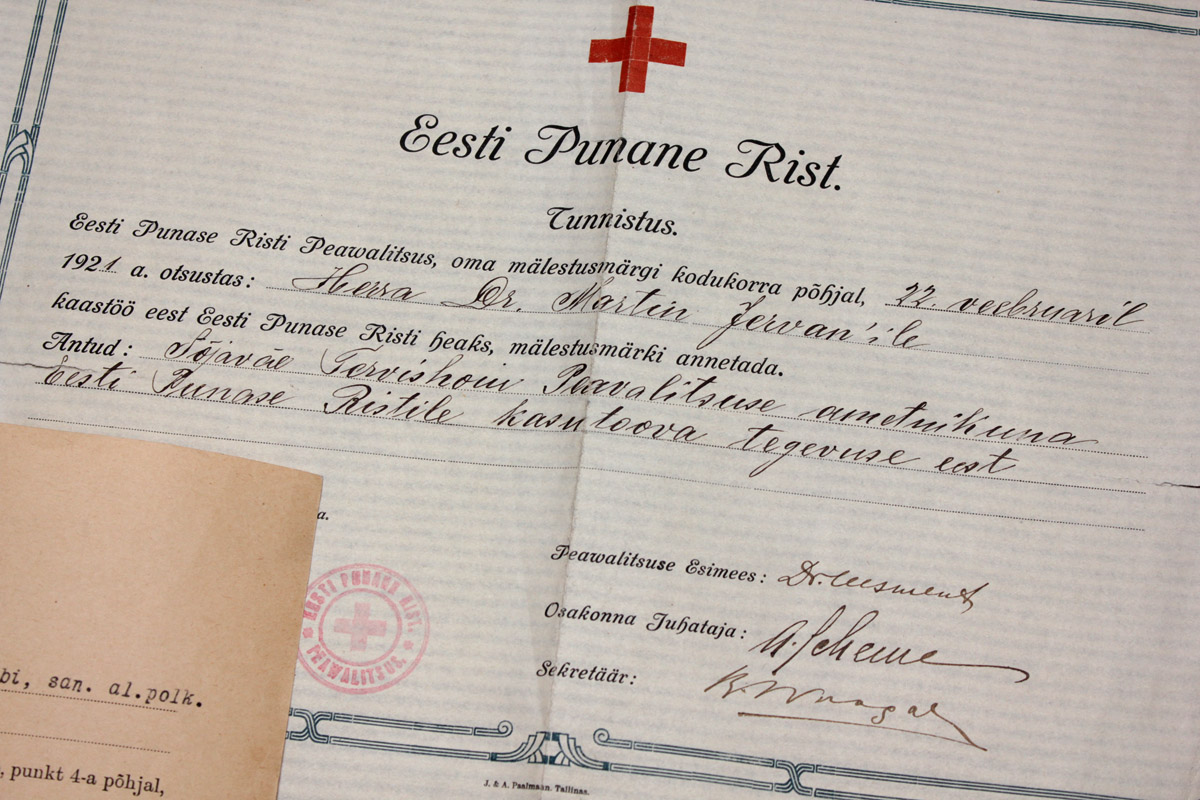 Eesti Punane Rist.
Tunnistus.
Eesti Punase Risti Peawalitsus, oma mälestusmärgi kodukorra põhjal, 22. veebruaril
1921 a. otsustas: Herra Dr. Martin Jervan'ile
kaastöö eest Eesti Punase Risti heaks, mälestusmärki annetada.
Antud: Sõjaväe Tervishoiu Peavalitsuse ametnikuna
Eesti Punase Ristile kasutoova tegevuse eest
a.
Peawalitsuse Esimees: Dr. Leesment
Osakonna Juhataja:
Sekretäär:
EESTI PUNANE RIST.
PEAWALITSUS.
bi, san. al.polk.
, punkt 4-a põhjal,
J. & A. Paalmann. Tallinas.